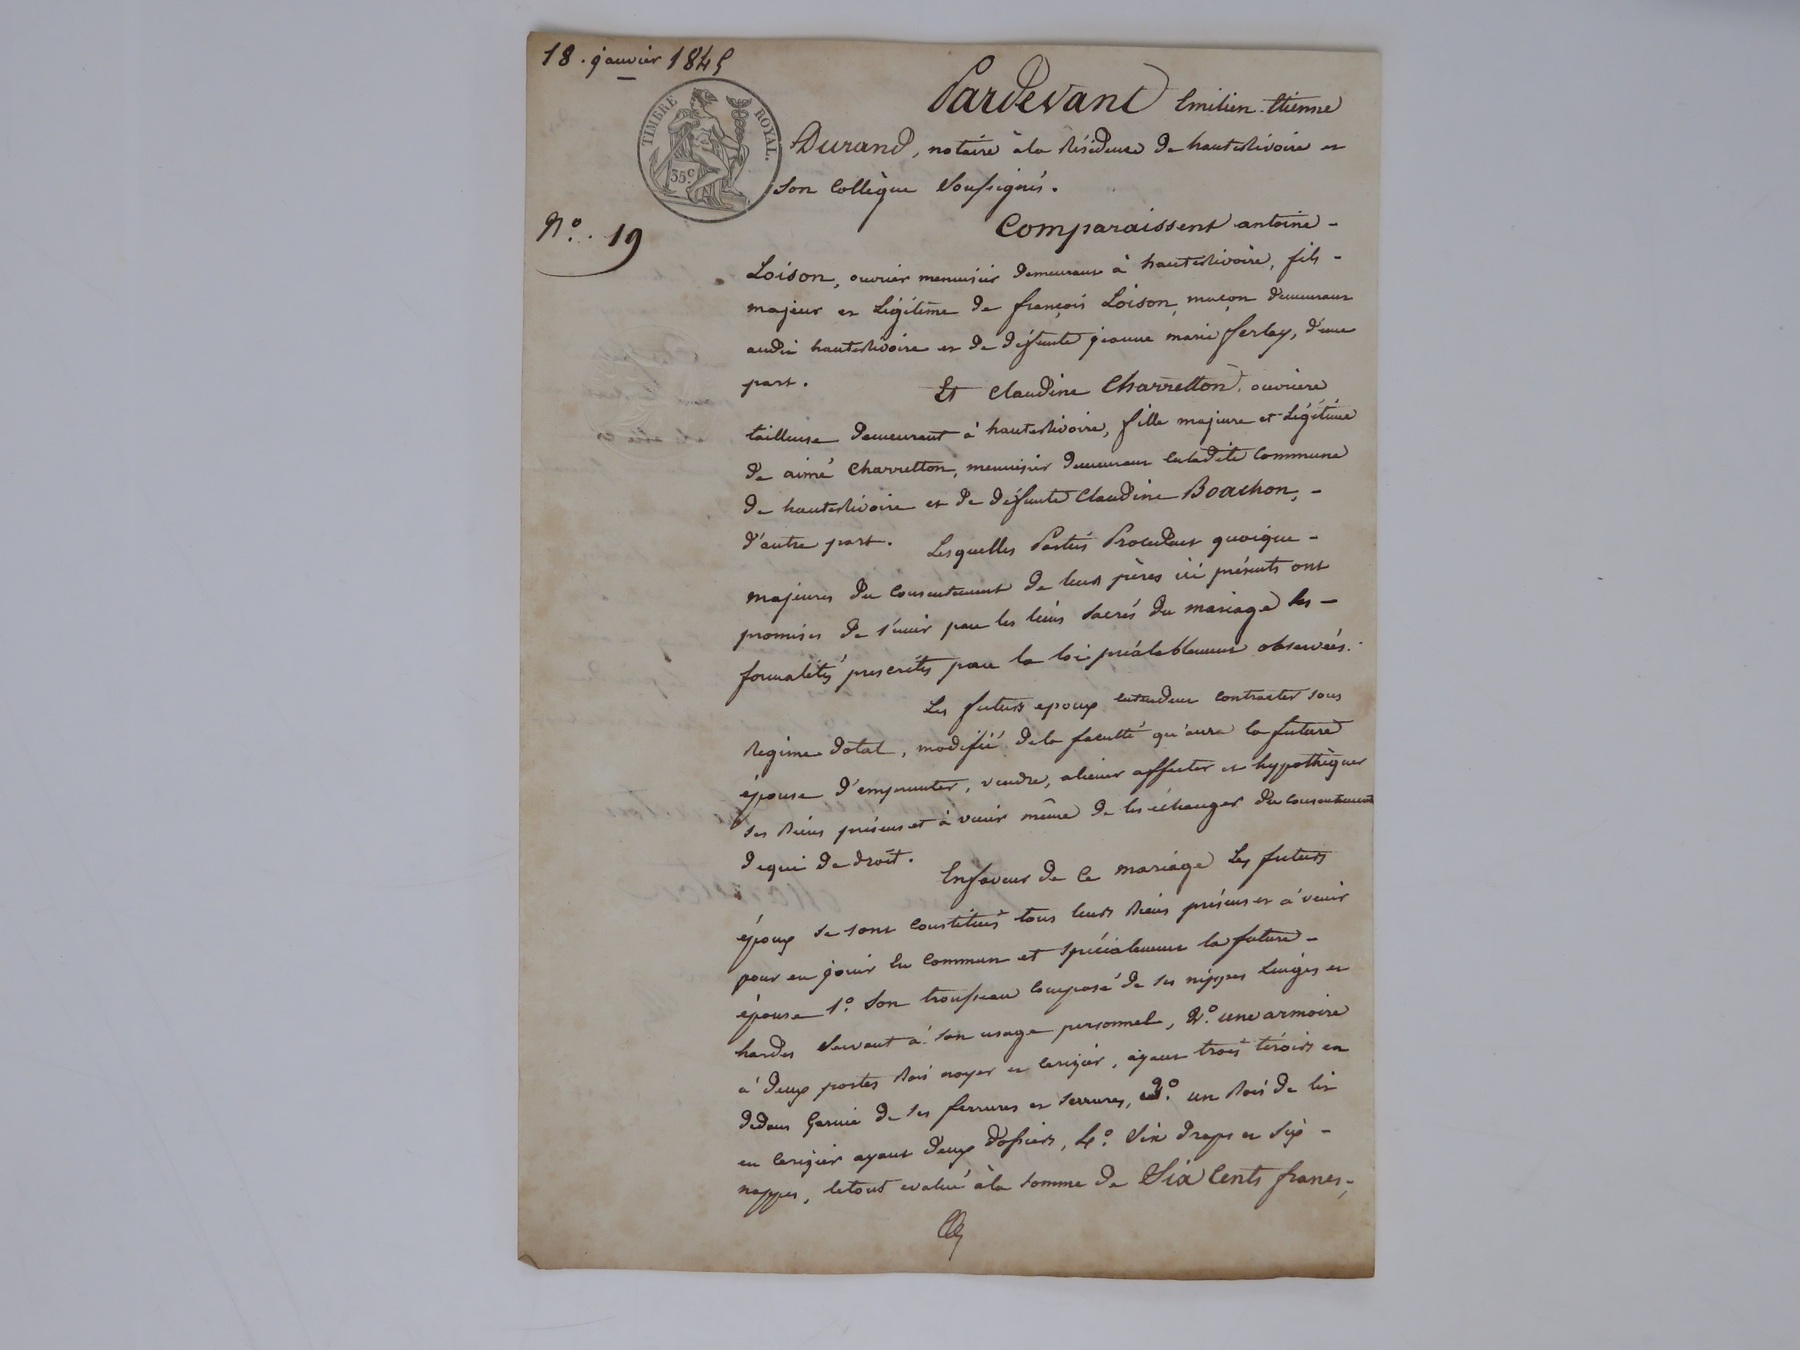 18. janvier 1845
TIMBRE ROYAL.
35c
Pardevant Emilien Etienne
Durand, notaire à la Résidence de hauterivoire et
son collègue soussignés.
No. 19
Comparaissent antoine -
Loison, ouvrier menuisier demeurant à hauterivoire, fils -
majeur et Légitime de françois Loison, maçon demeurant
audit hauterivoire et de défunte jeanne marie ferlay, d'une
part.
Et Claudine Charretton, ouvriere
tailleuse demeurant à hauterivoire, fille majeure et Légitime
de aimé Charretton, menuisier demeurant en ladite Commune
de hauterivoire et de défunte Claudine Boachon, -
d'autre part.
Lesquelles Parties Procedant quoique -
majeures du consentement de leurs pères ici présents ont
promises de s'unir par les liens sacrés du mariage les -
formalités prescrites par la loi préalablement observées.
Les futurs epoux entendent contracter sous
Regime dotal, modifié de la faculté qu'aura la future
épouse d'emprunter, vendre, aliener affecter et hypothèquer
ses Biens présens et à venir même de les échanger du consentement
de qui de droit.
En faveur de ce mariage Les futurs
époux se sont constitués tous leurs Biens présens et à venir
pour en jouir en commun et spécialement la future -
épouse 1o. Son trousseau composé de ses nippes linges et
hardes servant à son usage personnel, 2o. une armoire
à deux portes Bois noyer et cerizier, ayant trois tiroirs en
dedans Garnie de ses ferrures et serrures, 3o. un Bois de lit
en cerizier ayant deux dossiers, 4o. Six draps et six -
nappes, le tout evalué à la somme de Six Cents francs,